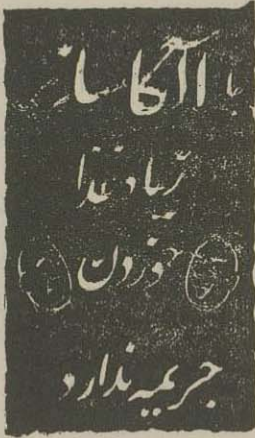 با آلکا سلزر
زیاد غذا
خوردن
جریمه ندارد